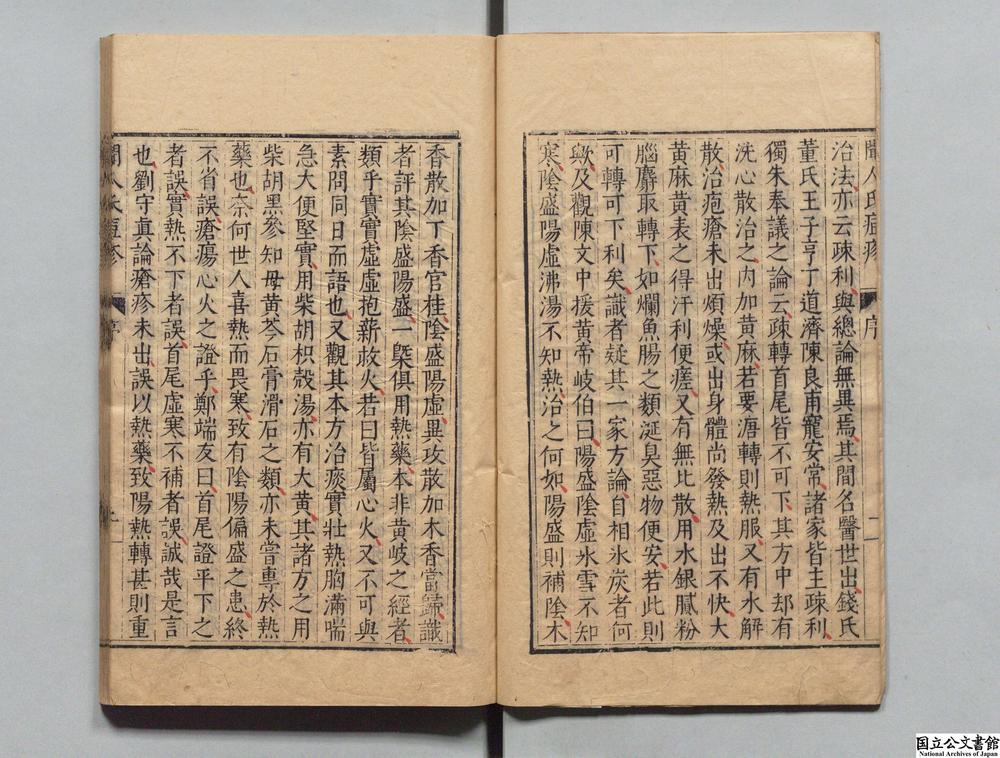 聞人氏痘疹 序 二
治法亦云疎利與總論無異焉其間名醫世出錢氏
董氏王子亨丁道濟陳良甫寵安常諸家皆主疎利
獨朱奉議之論云疎轉首尾皆不可下其方中却有
洗心散治之內加黃麻若要溏轉則熱服又有水解
散治疱瘡未出煩燥或出身體尚發熱及出不快大
黃麻黃表之得汗利便瘥又有無比散用水銀膩粉
腦麝取轉下如爛魚腸之類涎臭惡物便安若此則
可轉可下利矣識者疑其一家方論自相氷炭者何
歟及觀陳文中援黃帝岐伯曰陽盛陰虛氷雪不知
寒陰盛陽虛沸湯不知熱治之何如陽盛則補陰木
香散加丁香官桂陰盛陽虛異攻散加木香當歸識
者評其陰盛陽盛一槩俱用熱藥本非黃岐之經者
類乎實實虛虛抱薪救火若曰皆屬心火又不可與
素問同日而語也又觀其本方治痰實壯熱胸滿喘
急大便堅實用柴胡枳殼湯亦有大黃其諸方之用
柴胡黑參知母黃芩石膏滑石之類亦未嘗專於熱
藥也奈何世人喜熱而畏寒致有陰陽偏盛之患終
不省誤瘡瘍心火之證乎鄭端友曰首尾證平下之
者誤實熱不下者誤首尾虛寒不補者誤誠哉是言
也劉守真論瘡疹未出誤以熱藥致陽熱轉甚則重
聞人氏痘疹 序
国立公文書館
National Archives of Japan